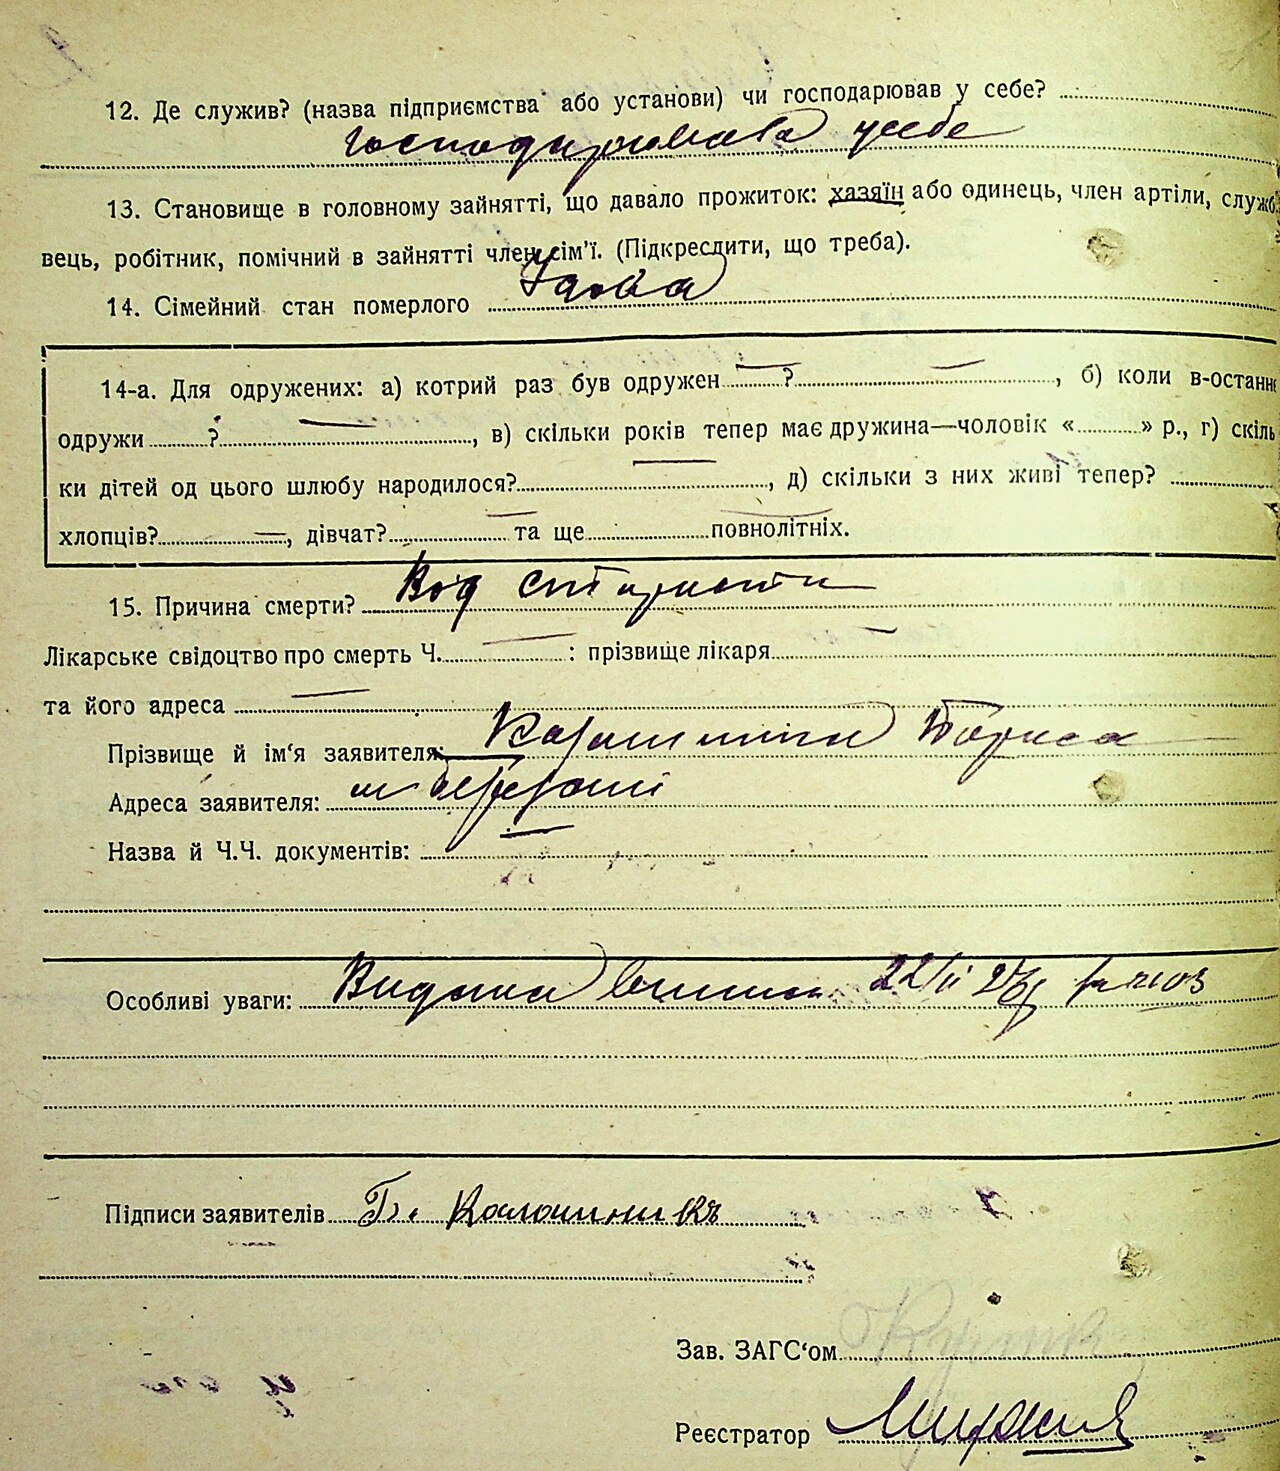 12. Де служив? (назва підприємства або установи) чи господарював у себе?
господарювала у себе
13. Становище в головному зайнятті, що давало прожиток: хазяїн або одинець, член артіли, служб
вець, робітник, помічний в зайнятті член сім'ї. (Підкреслити, що треба).
14. Сімейний стан померлого Удова
14-а. Для одружених: а) котрий раз був одружен ? , б) коли в-останнє
одружи ? , в) скільки років тепер має дружина—чоловік « » р., г) скіль
ки дітей од цього шлюбу народилося? , д) скільки з них живі тепер?
хлопців? , дівчат? та ще повнолітніх.
15. Причина смерти? Від старости
Лікарське свідоцтво про смерть Ч. : прізвище лікаря
та його адреса
Прізвище й ім'я заявителя: Бориса
Адреса заявителя: м
Назва й Ч.Ч. документів:
Особливі уваги: Видана 22/II
Підписи заявителів Б. Калашникъ
Зав. ЗАГС'ом
Реєстратор